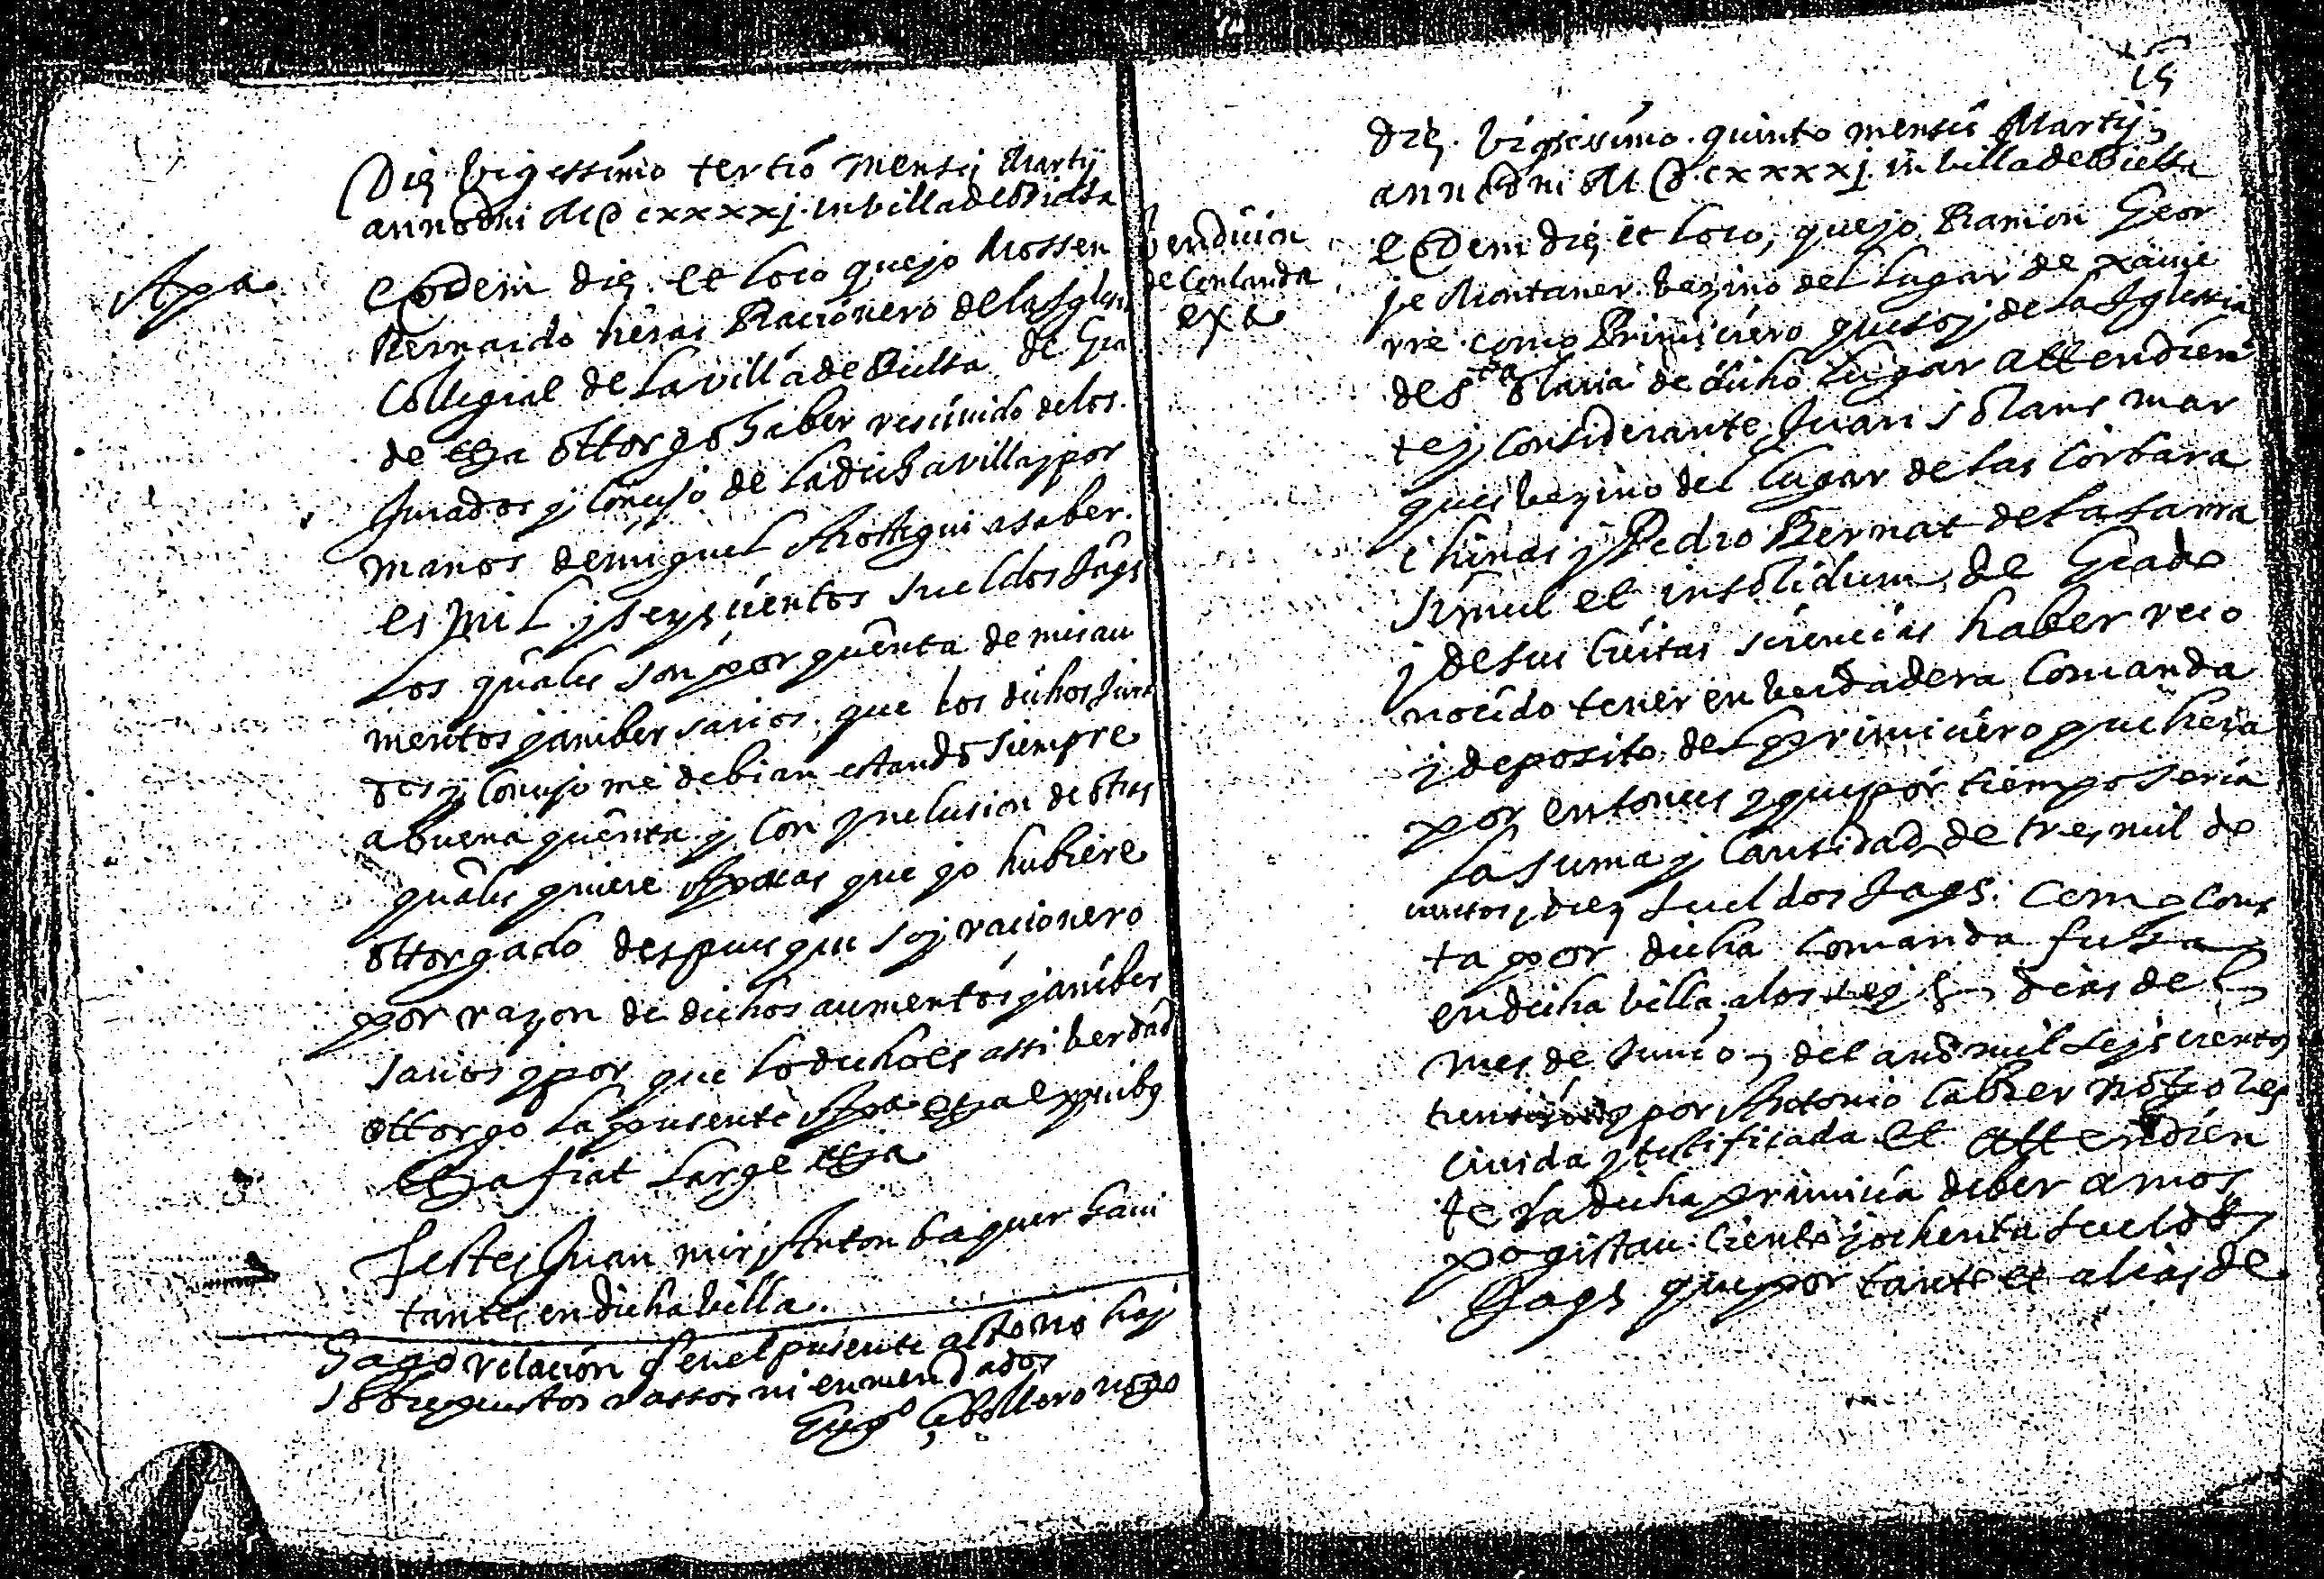 Die vigessimo tertio mensis Martij
anno Dni M D cxxxxj. in villa de Bielsa
Apa
Eodem die et loco que jo Mossen
Bernardo heras Racionero de la Iglesia
Collegial de la villa de Bielsa de Gra
de etza ottorgo haber rescivido de los
Jurados y Concejo de la dicha villa y por
manos de miguel asaber
es mil y seyscientos sueldos Jaqs
los quales son por quenta de mis au
mentos y aniversarios que los dichos Jura
dos y Concejo me debian estando siempre
a buena quenta y con ynclusion de otras
quales quiere Apocas que yo hubiere
ottorgado despues que soy racionero
por razon de dichos aumentos y aniber
sarios y por que lo dicho es assi berdad
ottorgo la presente Apa
etza fiat large etza
Testes Juan mir y Anton baquer havi
tantes en dicha villa.
Hago relacion q en el presente acto no hay
sobrepuestos rassos ni enmendados
15
Die vigessimo quinto mensis Martij
anno Dni M D cxxxxj. in villa de Bielsa
Vendicion
de Comanda
exa
Eodem die et loco, que jo Ramon Geor
je Montaner bezino del lugar de xavie
rre como Primiciero que soy de la Iglesia
de Sta Maria de dicho lugar attendien
te y considerante Juan solans mar
ques bezino del lugar de las Corbara
chinas y Pedro Bernat de la sarra
simul et insolidum de Grado
y de sus ciertas sciencias haber reco
nocido tener en verdadera Comanda
y deposito del primiciero que hera
por entonces y que por tiempo seria
la suma y Cantidad de tres mil do
cientos y diez sueldos Jaqs. como cons
ta por dicha comanda fecha
en dicha villa a los dias del
mes de Junio del año mil seyscientos
por Antonio Cabrer notto res
civida y testificada et attendien
te la dicha primicia deber a mos
po gistau ciento y ochenta sueldos
Jaqs que por tanto et alias de